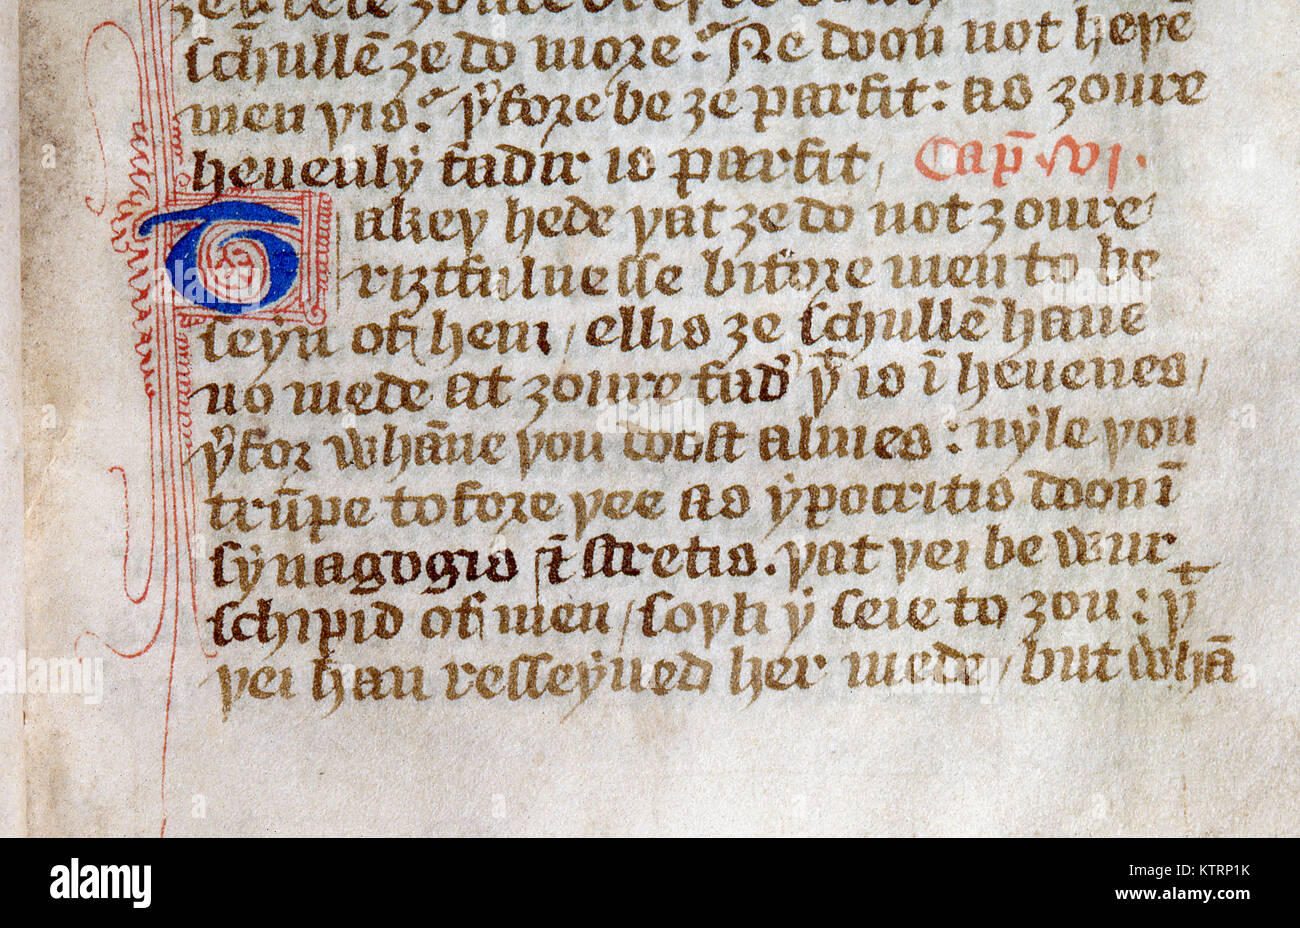 schullē ȝe do more? Ne doon not heþē
men þis? þ̄fore be ȝe parfit: as ȝoure
heuenly fadir is parfit/ Cap̄ .vi.
Takeþ hede þat ȝe do not ȝoure
riȝtfulnesse bifore men to be
seyn of hem/ ellis ȝe schullē haue
no mede at ȝoure fad' þ̄ is ī heuenes/
þ̄for whāne þou doost almes: nyle þou
trūpe tofore þee as ypocritis doon ī
synagogis ⁊ stretis. þat þei be wur
schipid of men/ soþli y seie to ȝou: þᵗ
þei han resseyued her mede/ but whā
alamy
a
alamy
Image ID: KTRP1K
www.alamy.com